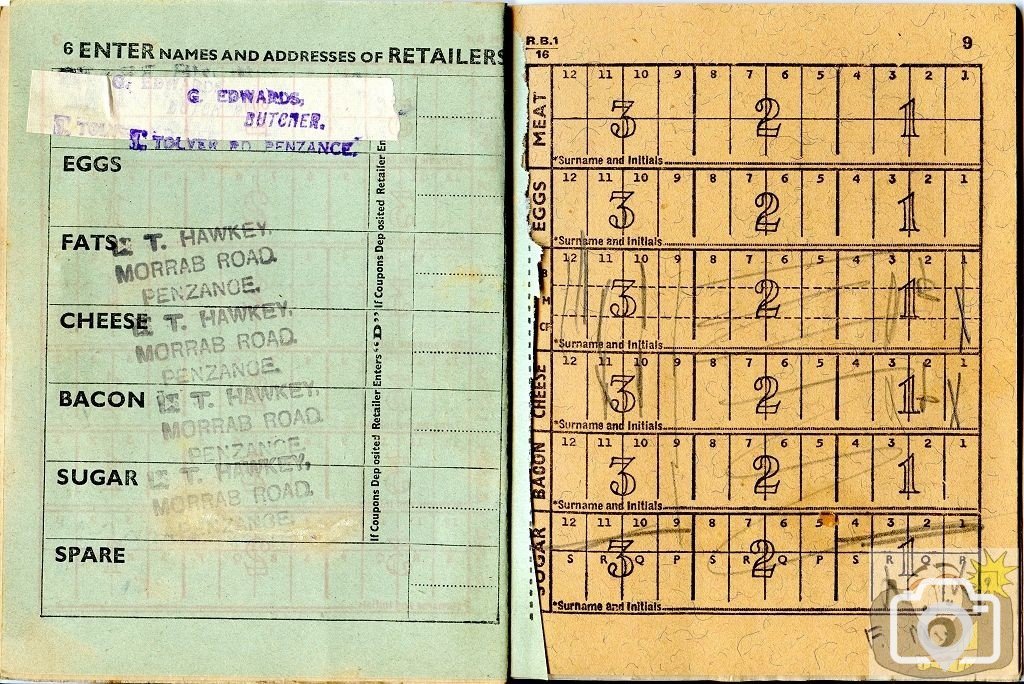 6 ENTER NAMES AND ADDRESSES OF RETAILERS
G. EDWARDS,
BUTCHER.
TOLVER RD PENZANCE.
EGGS
FATS
T. HAWKEY,
MORRAB ROAD.
PENZANCE.
CHEESE
T. HAWKEY,
MORRAB ROAD.
PENZANCE.
BACON
T. HAWKEY,
MORRAB ROAD.
PENZANCE.
SUGAR
T. HAWKEY,
MORRAB ROAD.
PENZANCE.
SPARE
If Coupons Deposited Retailer Enters "D" If Coupons Deposited Retailer En
R.B.1
16
9
MEAT
12 11 10 9 8 7 6 5 4 3 2 1
3 2 1
*Surname and Initials
EGGS
12 11 10 9 8 7 6 5 4 3 2 1
3 2 1
*Surname and Initials
12 11 10 9 8 7 6 5 4 3 2 1
3 2 1
*Surname and Initials
CHEESE
12 11 10 9 8 7 6 5 4 3 2 1
3 2 1
*Surname and Initials
BACON
12 11 10 9 8 7 6 5 4 3 2 1
3 2 1
*Surname and Initials
SUGAR
12 11 10 9 8 7 6 5 4 3 2 1
S R Q P S R Q P S R Q P
3 2 1
*Surname and Initials